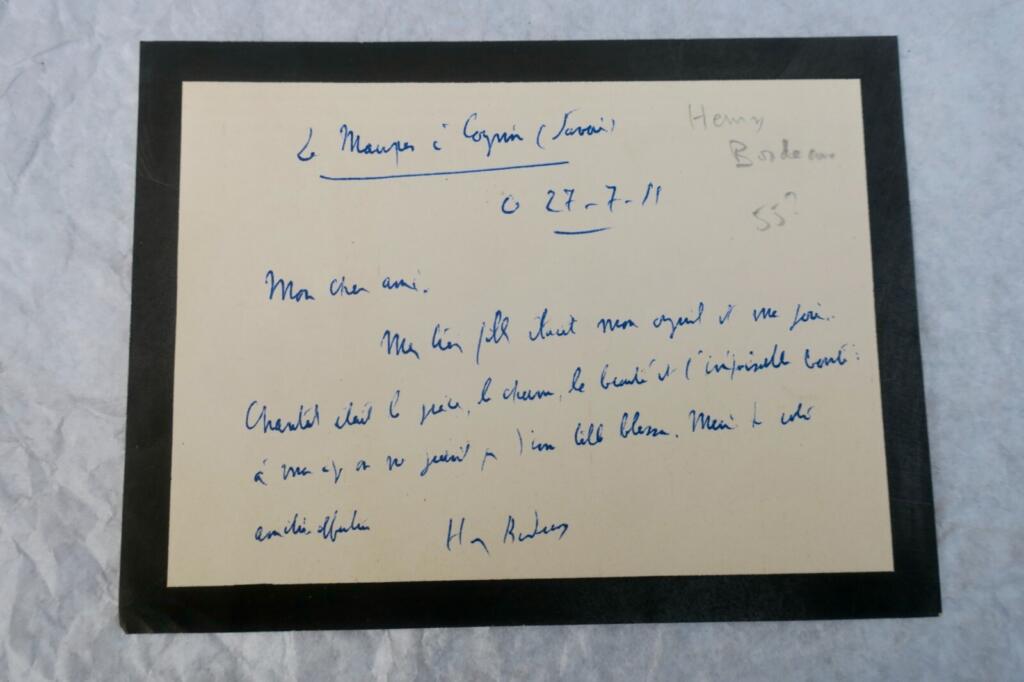 Le Maupas à Cognin (Savoie)
Henry
Bordeaux
27-7-
55?
Mon cher ami.
Mes filles étaient mon orgueil et ma joie.
Chantal était la grâce, le charme, la beauté et l'inépuisable bonté:
à mon âge on ne guérit pas d'une telle blessure. Merci de votre
amitié
Henry Bordeaux